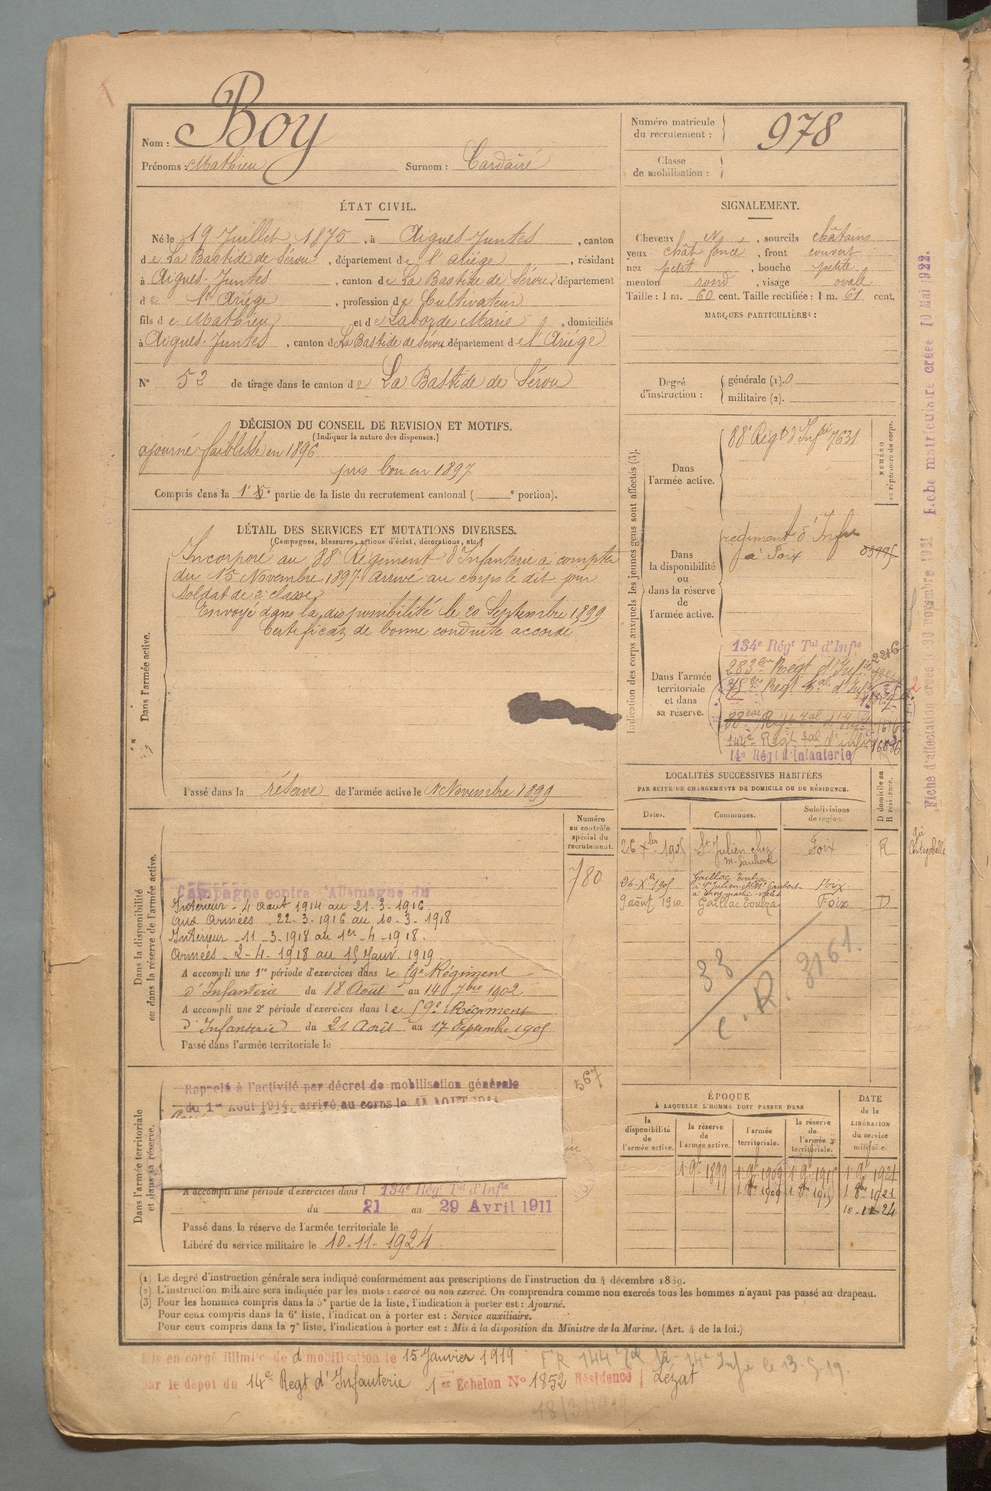 Nom : Boy
Prénoms : Mathieu Surnom : Cardaïré
Numéro matricule
du recrutement : 978
Classe
de mobilisation :
ÉTAT CIVIL.
Né le 19 Juillet 1875, à Aigues-Juntes, canton
de La Bastide de Sérou, département de l'Ariège, résidant
à Aigues-Juntes, canton de La Bastide de Sérou département
de l'Ariège, profession de Cultivateur
fils de Mathieu et de Laborde Marie, domiciliés
à Aigues-Juntes, canton de La Bastide de Sérou département de l'Ariège
N° 52 de tirage dans le canton de La Bastide de Sérou
SIGNALEMENT.
Cheveux N, sourcils châtains
yeux chât foncé, front couvert
nez petit, bouche petite
menton rond, visage ovale
Taille : 1 m. 60 cent. Taille rectifiée : 1 m. 61 cent.
MARQUES PARTICULIÈRES :
Degré
d'instruction :
générale (1). 0
militaire (2).
DÉCISION DU CONSEIL DE REVISION ET MOTIFS.
(Indiquer la nature des dispenses.)
ajourné faiblesse en 1896
pris bon en 1897
Compris dans la 1re partie de la liste du recrutement cantonal ( e portion).
DÉTAIL DES SERVICES ET MUTATIONS DIVERSES.
(Campagnes, blessures, actions d'éclat, décorations, etc.)
Dans l'armée active.
Incorporé au 88e Régiment d'Infanterie à compter
du 15 Novembre 1897. Arrivé au corps le dit jour
Soldat de 2e classe
Envoyé dans la disponibilité le 20 Septembre 1899
Certificat de bonne conduite accordé
Passé dans la réserve de l'armée active le 1er Novembre 1899
Indication des corps auxquels les jeunes gens sont affectés (3).
NUMÉRO
au répertoire du corps.
Dans
l'armée active.
88e Régt d'Infie 7631
Dans
la disponibilité
ou
dans la réserve
de
l'armée active.
régiment d'Infie
à Foix
Dans l'armée
territoriale
et dans
sa réserve.
134e Régt Tal d'Infie
283eme Régt d'Inf
144e Régt Tal d'Infie
14e Régt d'Infanterie
Fiche d'affectation créée : 30 novembre 1921
Fiche matriculaire créée 10 Mai 1922.
LOCALITÉS SUCCESSIVES HABITÉES
PAR SUITE DE CHANGEMENTS DE DOMICILE OU DE RÉSIDENCE.
Dates. Communes. Subdivisions
de région. D domicile ou
R résidence.
St Julien chez
M. Jaubert Foix R
Gaillac Toulza Foix
9 août 1910 Gaillac Toulza Foix D
33
C.R. 3161.
Numéro
au contrôle
spécial du
recrutement.
780
567
Dans la disponibilité
ou dans la réserve de l'armée active.
Campagne contre l'Allemagne du
Intérieur - 4 Août 1914 au 21-3-1916
aux Armées - 22-3-1916 au 10-3-1918
Intérieur - 11-3-1918 au 1er-4-1918.
Armées - 2-4-1918 au 15 Janv. 1919
A accompli une 1re période d'exercices dans le 59e Régiment
d'Infanterie du 18 Août au 14 7bre 1902
A accompli une 2e période d'exercices dans le 59e Régiment
d'Infanterie du 21 Août au 17 Septembre 1905
Passé dans l'armée territoriale le
Dans l'armée territoriale
et dans sa réserve.
Rappelé à l'activité par décret de mobilisation générale
du 1er Août 1914, arrivé au corps le
A accompli une période d'exercices dans l 134e Régt Tal d'Infie
du 21 au 29 Avril 1911
Passé dans la réserve de l'armée territoriale le
Libéré du service militaire le 10-11-1924
ÉPOQUE
À LAQUELLE L'HOMME DOIT PASSER DANS
DATE
de la
LIBÉRATION
du service
militaire.
la
disponibilité
de
l'armée active.
la réserve
de
l'armée active.
l'armée
territoriale.
la réserve
de
l'armée
territoriale.
1 9e 1899 1 9e 1909 1 9e 1915 1 9e 1921
10-11-24
(1) Le degré d'instruction générale sera indiqué conformément aux prescriptions de l'instruction du 4 décembre 1889.
(2) L'instruction militaire sera indiquée par les mots : exercé ou non exercé. On comprendra comme non exercés tous les hommes n'ayant pas passé au drapeau.
(3) Pour les hommes compris dans la 5e partie de la liste, l'indication à porter est : Ajourné.
Pour ceux compris dans la 6e liste, l'indication à porter est : Service auxiliaire.
Pour ceux compris dans la 7e liste, l'indication à porter est : Mis à la disposition du Ministre de la Marine. (Art. 4 de la loi.)
Mis en congé illimité de démobilisation le 15 Janvier 1919
par le dépôt du 14e Regt d'Infanterie 1er Echelon N° 1852 Résidence Lézat